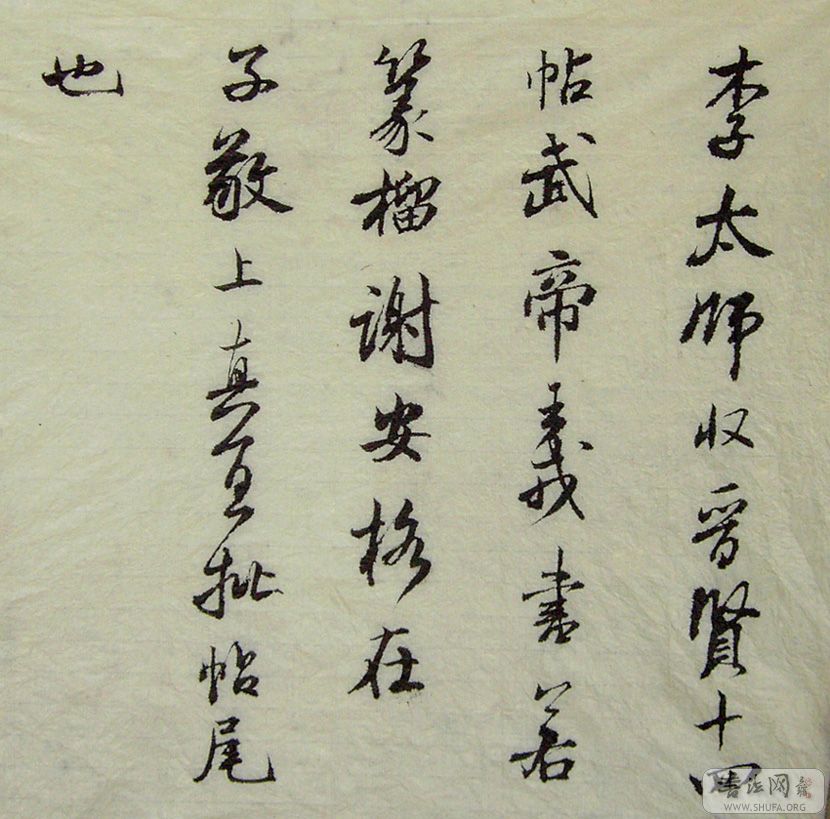 李太师收晋賢十四
帖武帝王戎書若
篆榴谢安格在
子敬上真宜批帖尾
也
书法网
WWW.SHUFA.ORG